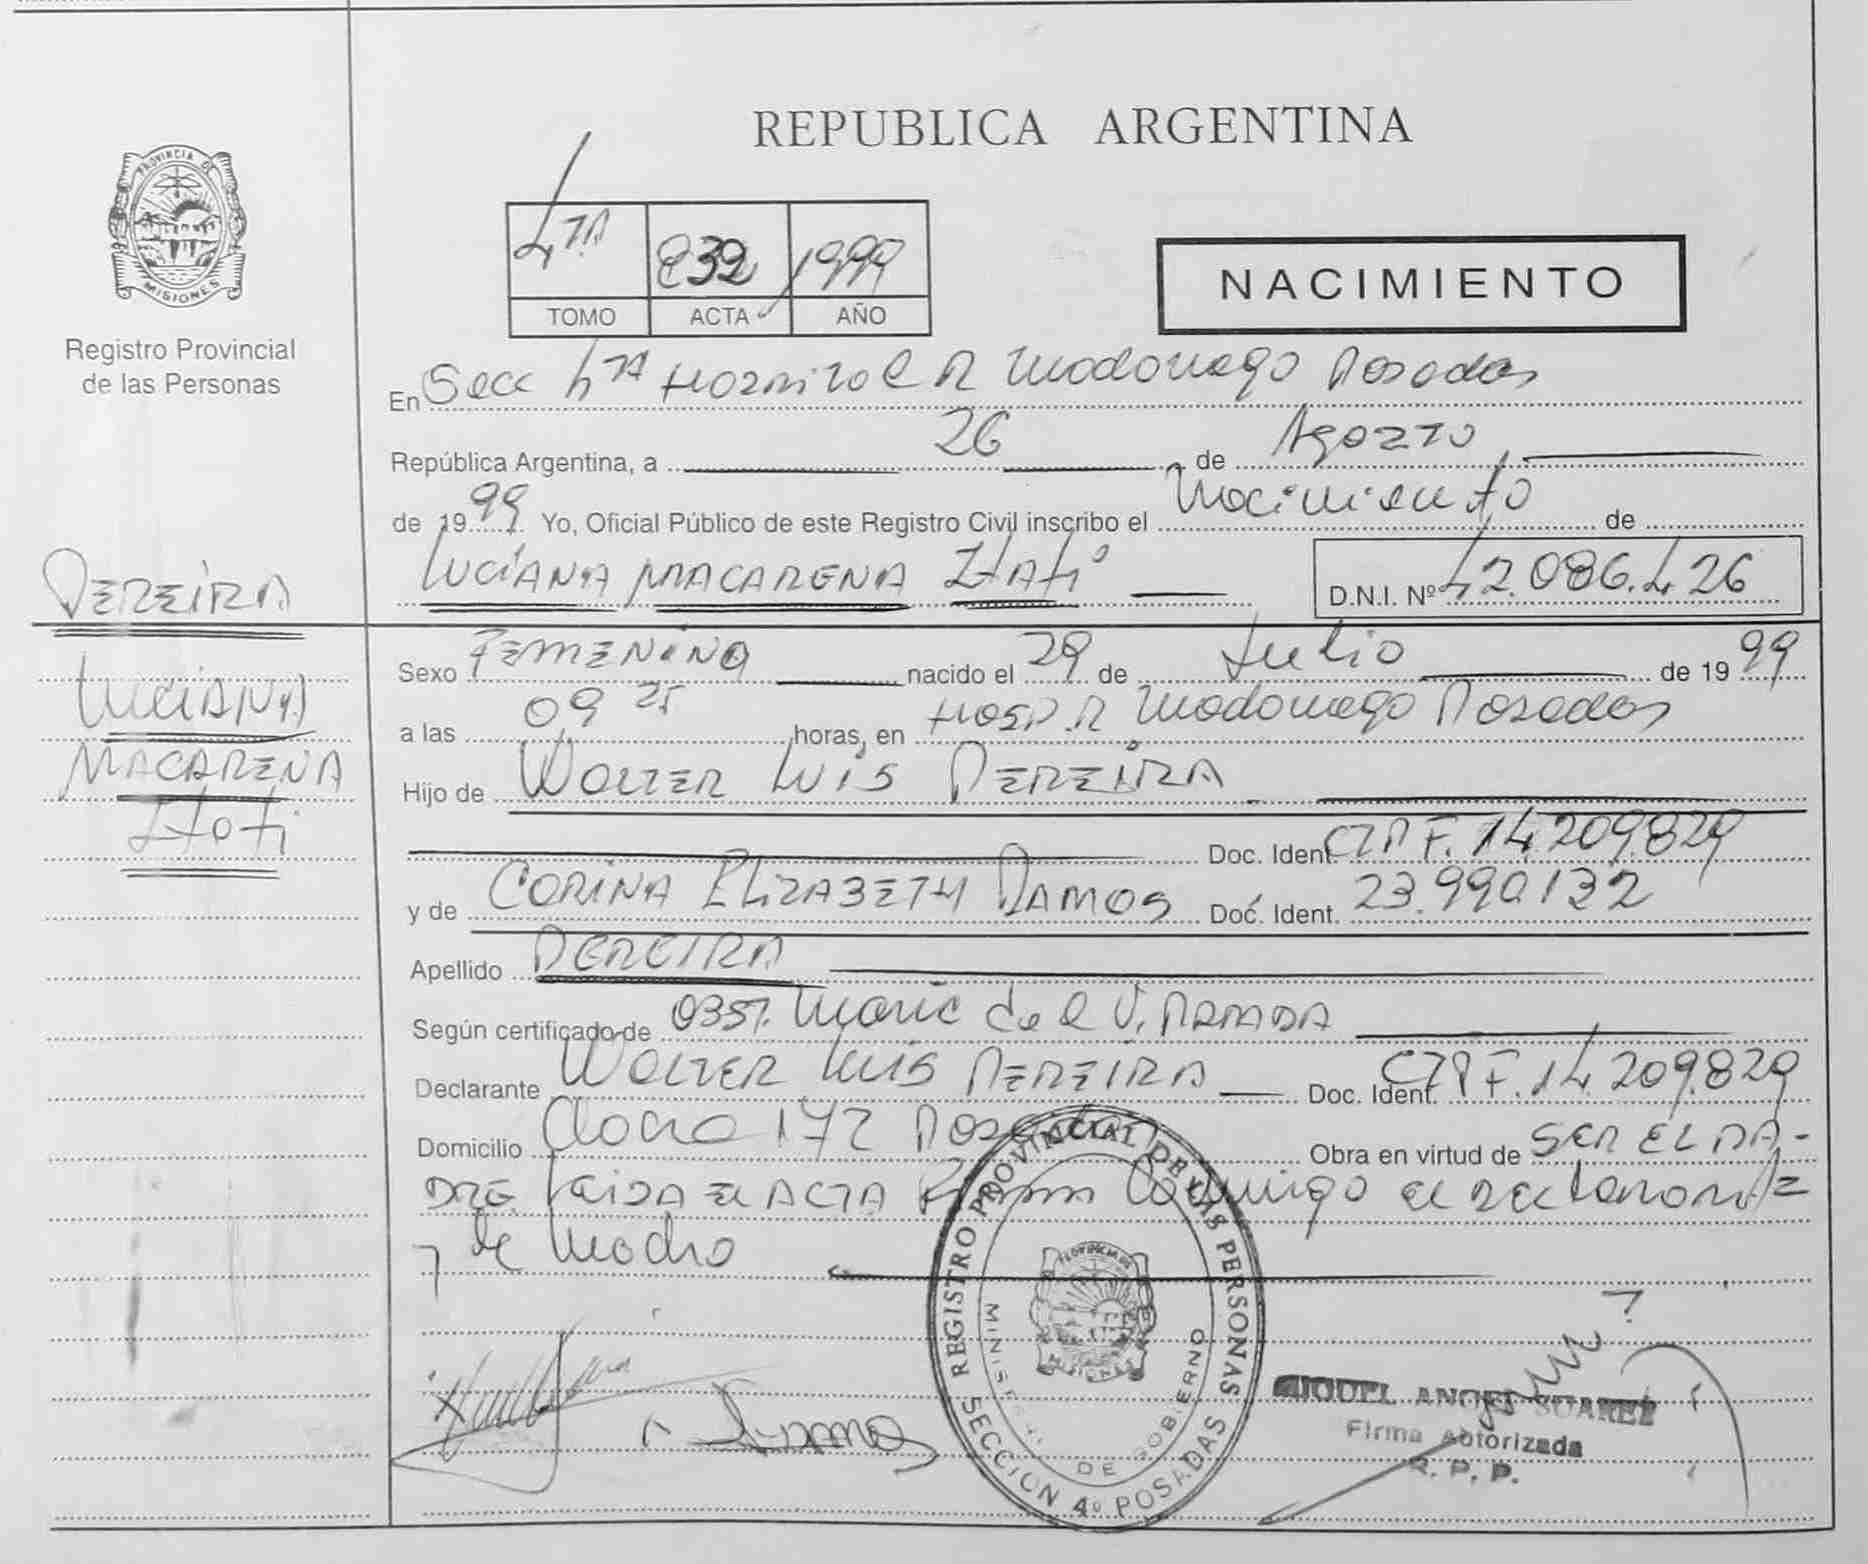 REPUBLICA ARGENTINA
PROVINCIA DE
MISIONES
Registro Provincial
de las Personas
4TA 832 1999
TOMO ACTA AÑO
NACIMIENTO
En Secc 4TA Hospital R Madariaga Posadas
República Argentina, a 26 de Agosto
de 1999 Yo, Oficial Público de este Registro Civil inscribo el Nacimiento de
LUCIANA MACARENA Itatí D.N.I. Nº 42.086.426
PEREIRA
LUCIANA
MACARENA
Itati
Sexo FEMENINO nacido el 29 de Julio de 1999
a las 09 25 horas, en HOSP. R Madariaga Posadas
Hijo de WALTER LUIS PEREIRA
Doc. Ident. 14.209.829
y de CORINA ELIZABETH RAMOS Doc. Ident. 23.990.132
Apellido PEREIRA
Según certificado de OBST. Maria del V.
Declarante WALTER LUIS PEREIRA Doc. Ident. 14.209.829
Domicilio 172 Posadas Obra en virtud de SER EL PA-
DRE. Leida EL ACTA Firma Conmigo el declarante
y la Madre
REGISTRO PROVINCIAL DE LAS PERSONAS
MINISTERIO DE GOBIERNO
PROVINCIA DE
MISIONES
SECCION 4º POSADAS
MIGUEL ANGEL SUAREZ
Firma Autorizada
R. P. P.